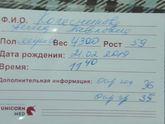 Ф.И.О. Колесникова
Павловна
Пол Вес 4300 Рост 59
Дата рождения: 21.02.2019
Время 11 40
Дополнительная информация: Окр гол 36
Окр гр 35
UNICORN
MED